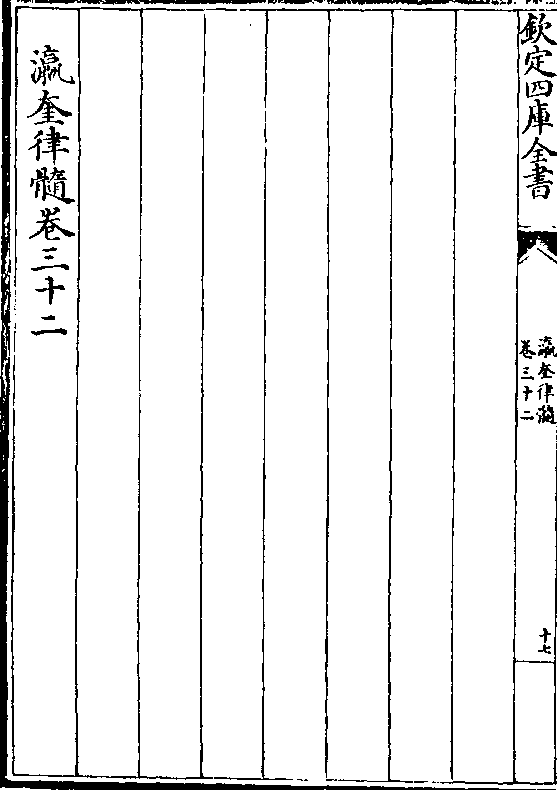 欽定四庫全書
瀛奎律髓
卷三十二
十七
瀛奎律髓卷三十二